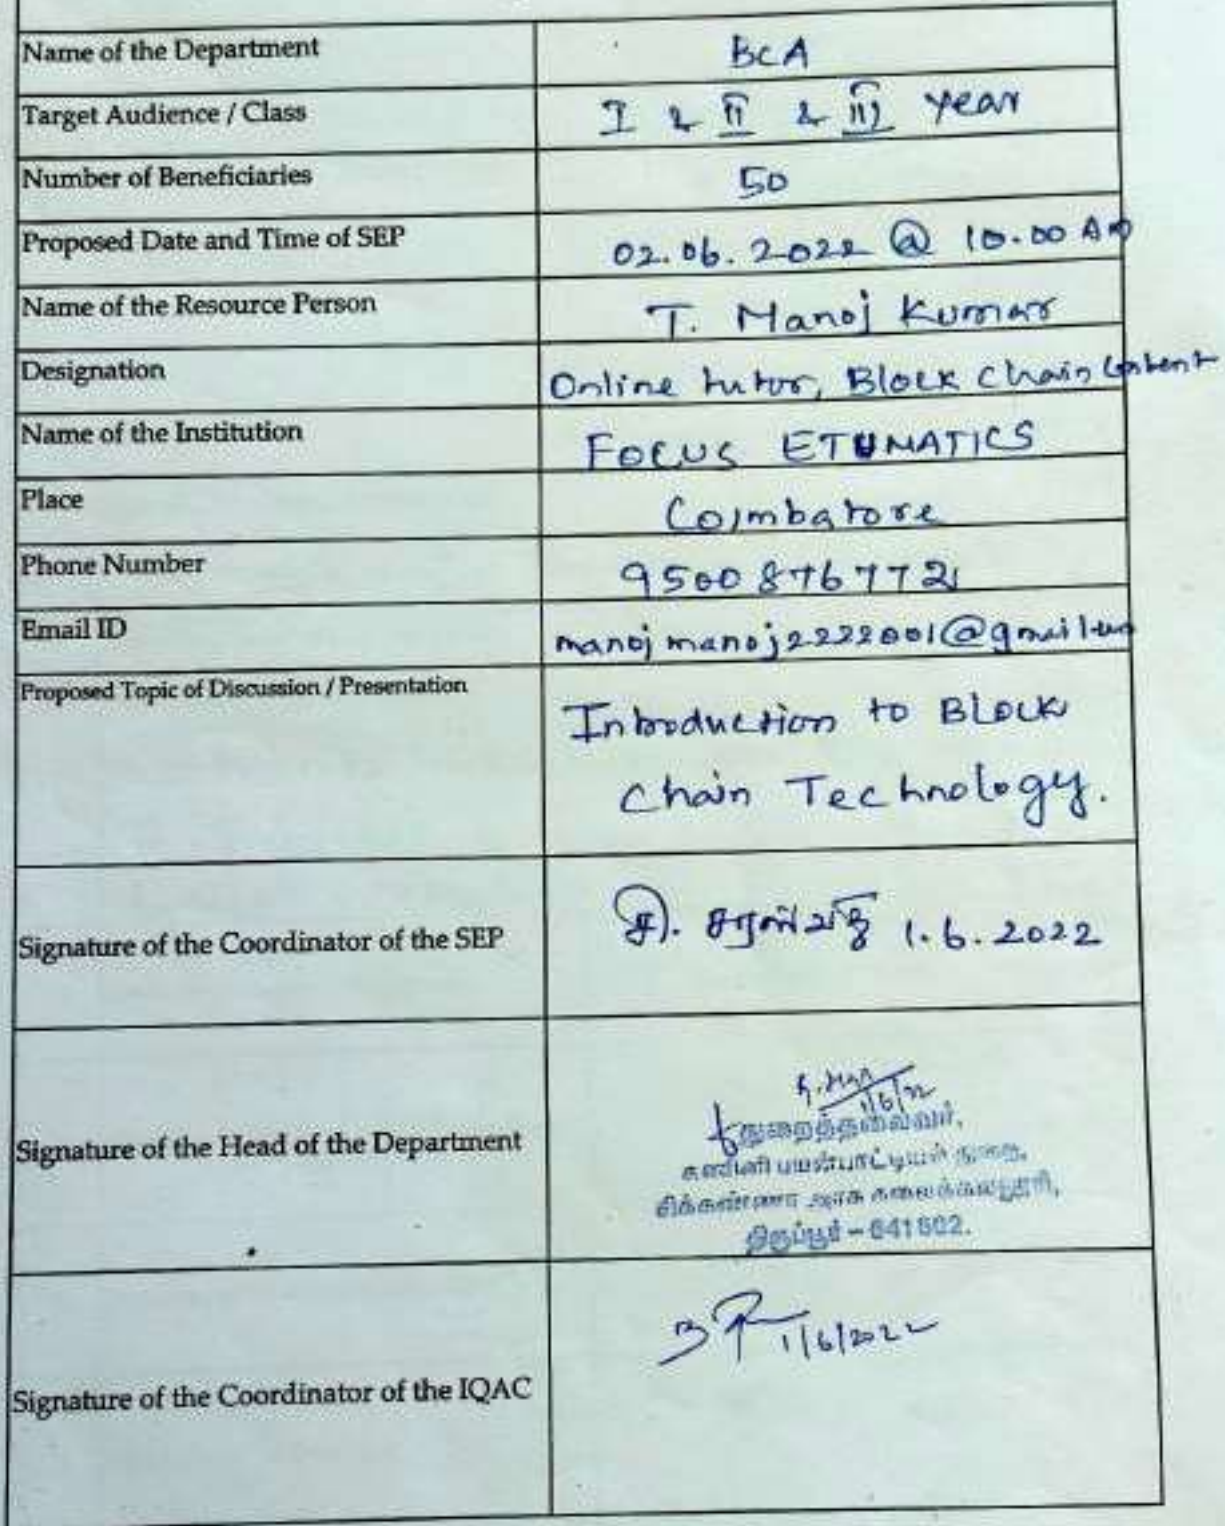 Name of the Department BCA
Target Audience / Class I & II & III year
Number of Beneficiaries 50
Proposed Date and Time of SEP 02.06.2022 @ 10.00 AM
Name of the Resource Person T. Manoj Kumar
Designation Online tutor, Block Chain Content
Name of the Institution FOCUS ETUMATICS
Place Coimbatore
Phone Number
Email ID manojmanoj2222001@gmail.com
Proposed Topic of Discussion / Presentation Introduction to Block
Chain Technology.
Signature of the Coordinator of the SEP சி. சரஸ்வதி 1.6.2022
1/6/22
Signature of the Head of the Department துறைத்தலைவர்,
கணினி பயன்பாட்டியல் துறை,
சிக்கண்ணா அரசு கலைக்கல்லூரி,
திருப்பூர் – 641602.
1/6/2022
Signature of the Coordinator of the IQAC